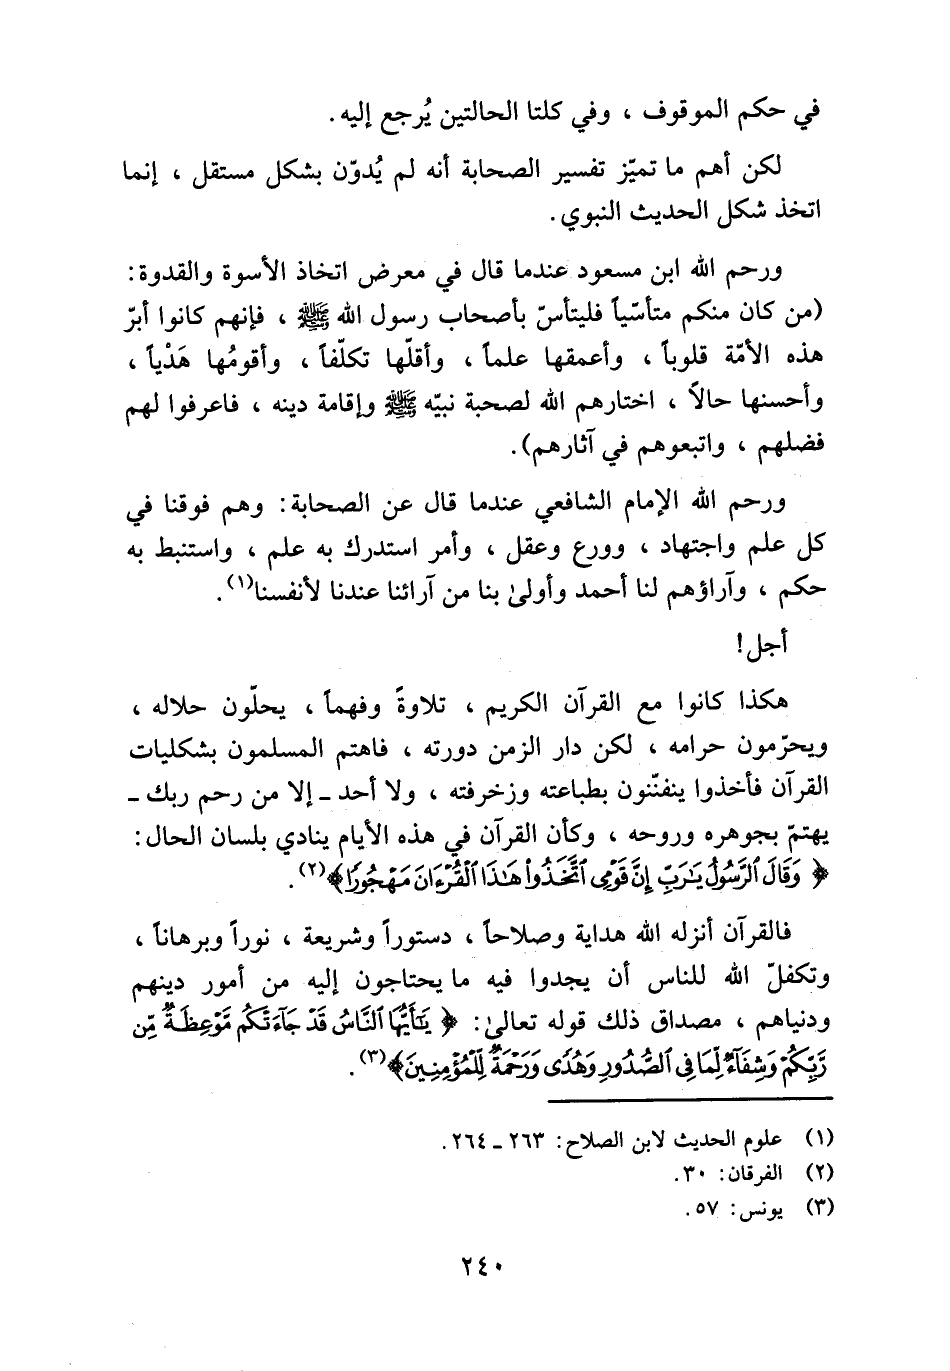 في حكم الموقوف ، وفي كلتا الحالتين يُرجع إليه .
لكن أهم ما تميّز تفسير الصحابة أنه لم يُدوّن بشكل مستقل ، إنما
اتخذ شكل الحديث النبوي .
ورحم الله ابن مسعود عندما قال في معرض اتخاذ الأسوة والقدوة :
(من كان منكم متأسّياً فليتأسّ بأصحاب رسول الله ﷺ ، فإنهم كانوا أبرّ
هذه الأمّة قلوباً ، وأعمقها علماً ، وأقلّها تكلّفاً ، وأقومُها هَدْياً ،
وأحسنها حالاً ، اختارهم الله لصحبة نبيّه ﷺ وإقامة دينه ، فاعرفوا لهم
فضلهم ، واتبعوهم في آثارهم) .
ورحم الله الإمام الشافعي عندما قال عن الصحابة : وهم فوقنا في
كل علم واجتهاد ، وورع وعقل ، وأمر استدرك به علم ، واستنبط به
حكم ، وآراؤهم لنا أحمد وأولىٰ بنا من آرائنا عندنا لأنفسنا(١) .
أجل !
هكذا كانوا مع القرآن الكريم ، تلاوةً وفهماً ، يحلّون حلاله ،
ويحرّمون حرامه ، لكن دار الزمن دورته ، فاهتم المسلمون بشكليات
القرآن فأخذوا يتفنّنون بطباعته وزخرفته ، ولا أحد ـ إلا من رحم ربك ـ
يهتمّ بجوهره وروحه ، وكأن القرآن في هذه الأيام ينادي بلسان الحال :
﴿ وَقَالَ ٱلرَّسُولُ يَٰرَبِّ إِنَّ قَوْمِى ٱتَّخَذُوا۟ هَٰذَا ٱلْقُرْءَانَ مَهْجُورًا﴾(٢) .
فالقرآن أنزله الله هداية وصلاحاً ، دستوراً وشريعة ، نوراً وبرهاناً ،
وتكفلّ الله للناس أن يجدوا فيه ما يحتاجون إليه من أمور دينهم
ودنياهم ، مصداق ذلك قوله تعالىٰ : ﴿ يَٰٓأَيُّهَا ٱلنَّاسُ قَدْ جَآءَتْكُم مَّوْعِظَةٌ مِّن
رَّبِّكُمْ وَشِفَآءٌ لِّمَا فِى ٱلصُّدُورِ وَهُدًى وَرَحْمَةٌ لِّلْمُؤْمِنِينَ﴾(٣) .
(١) علوم الحديث لابن الصلاح : ٢٦٣ ـ ٢٦٤ .
(٢) الفرقان : ٣٠ .
(٣) يونس : ٥٧ .
٢٤٠